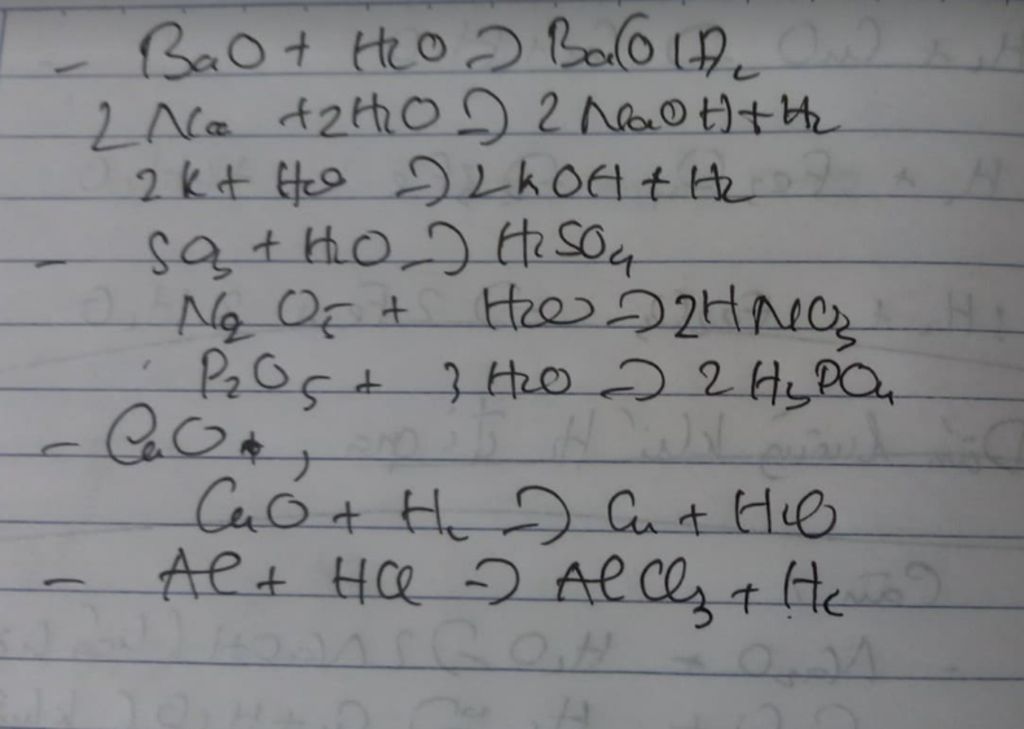 - BaO + H2O => Ba(OH)2
2 Na + 2H2O => 2 NaOH + H2
2K + H2O => 2KOH + H2
- SO3 + H2O => H2SO4
N2O5 + H2O => 2HNO3
P2O5 + 3 H2O => 2 H3PO4
- CaO,
CuO + H2 => Cu + H2O
- Al + HCl => AlCl3 + H2